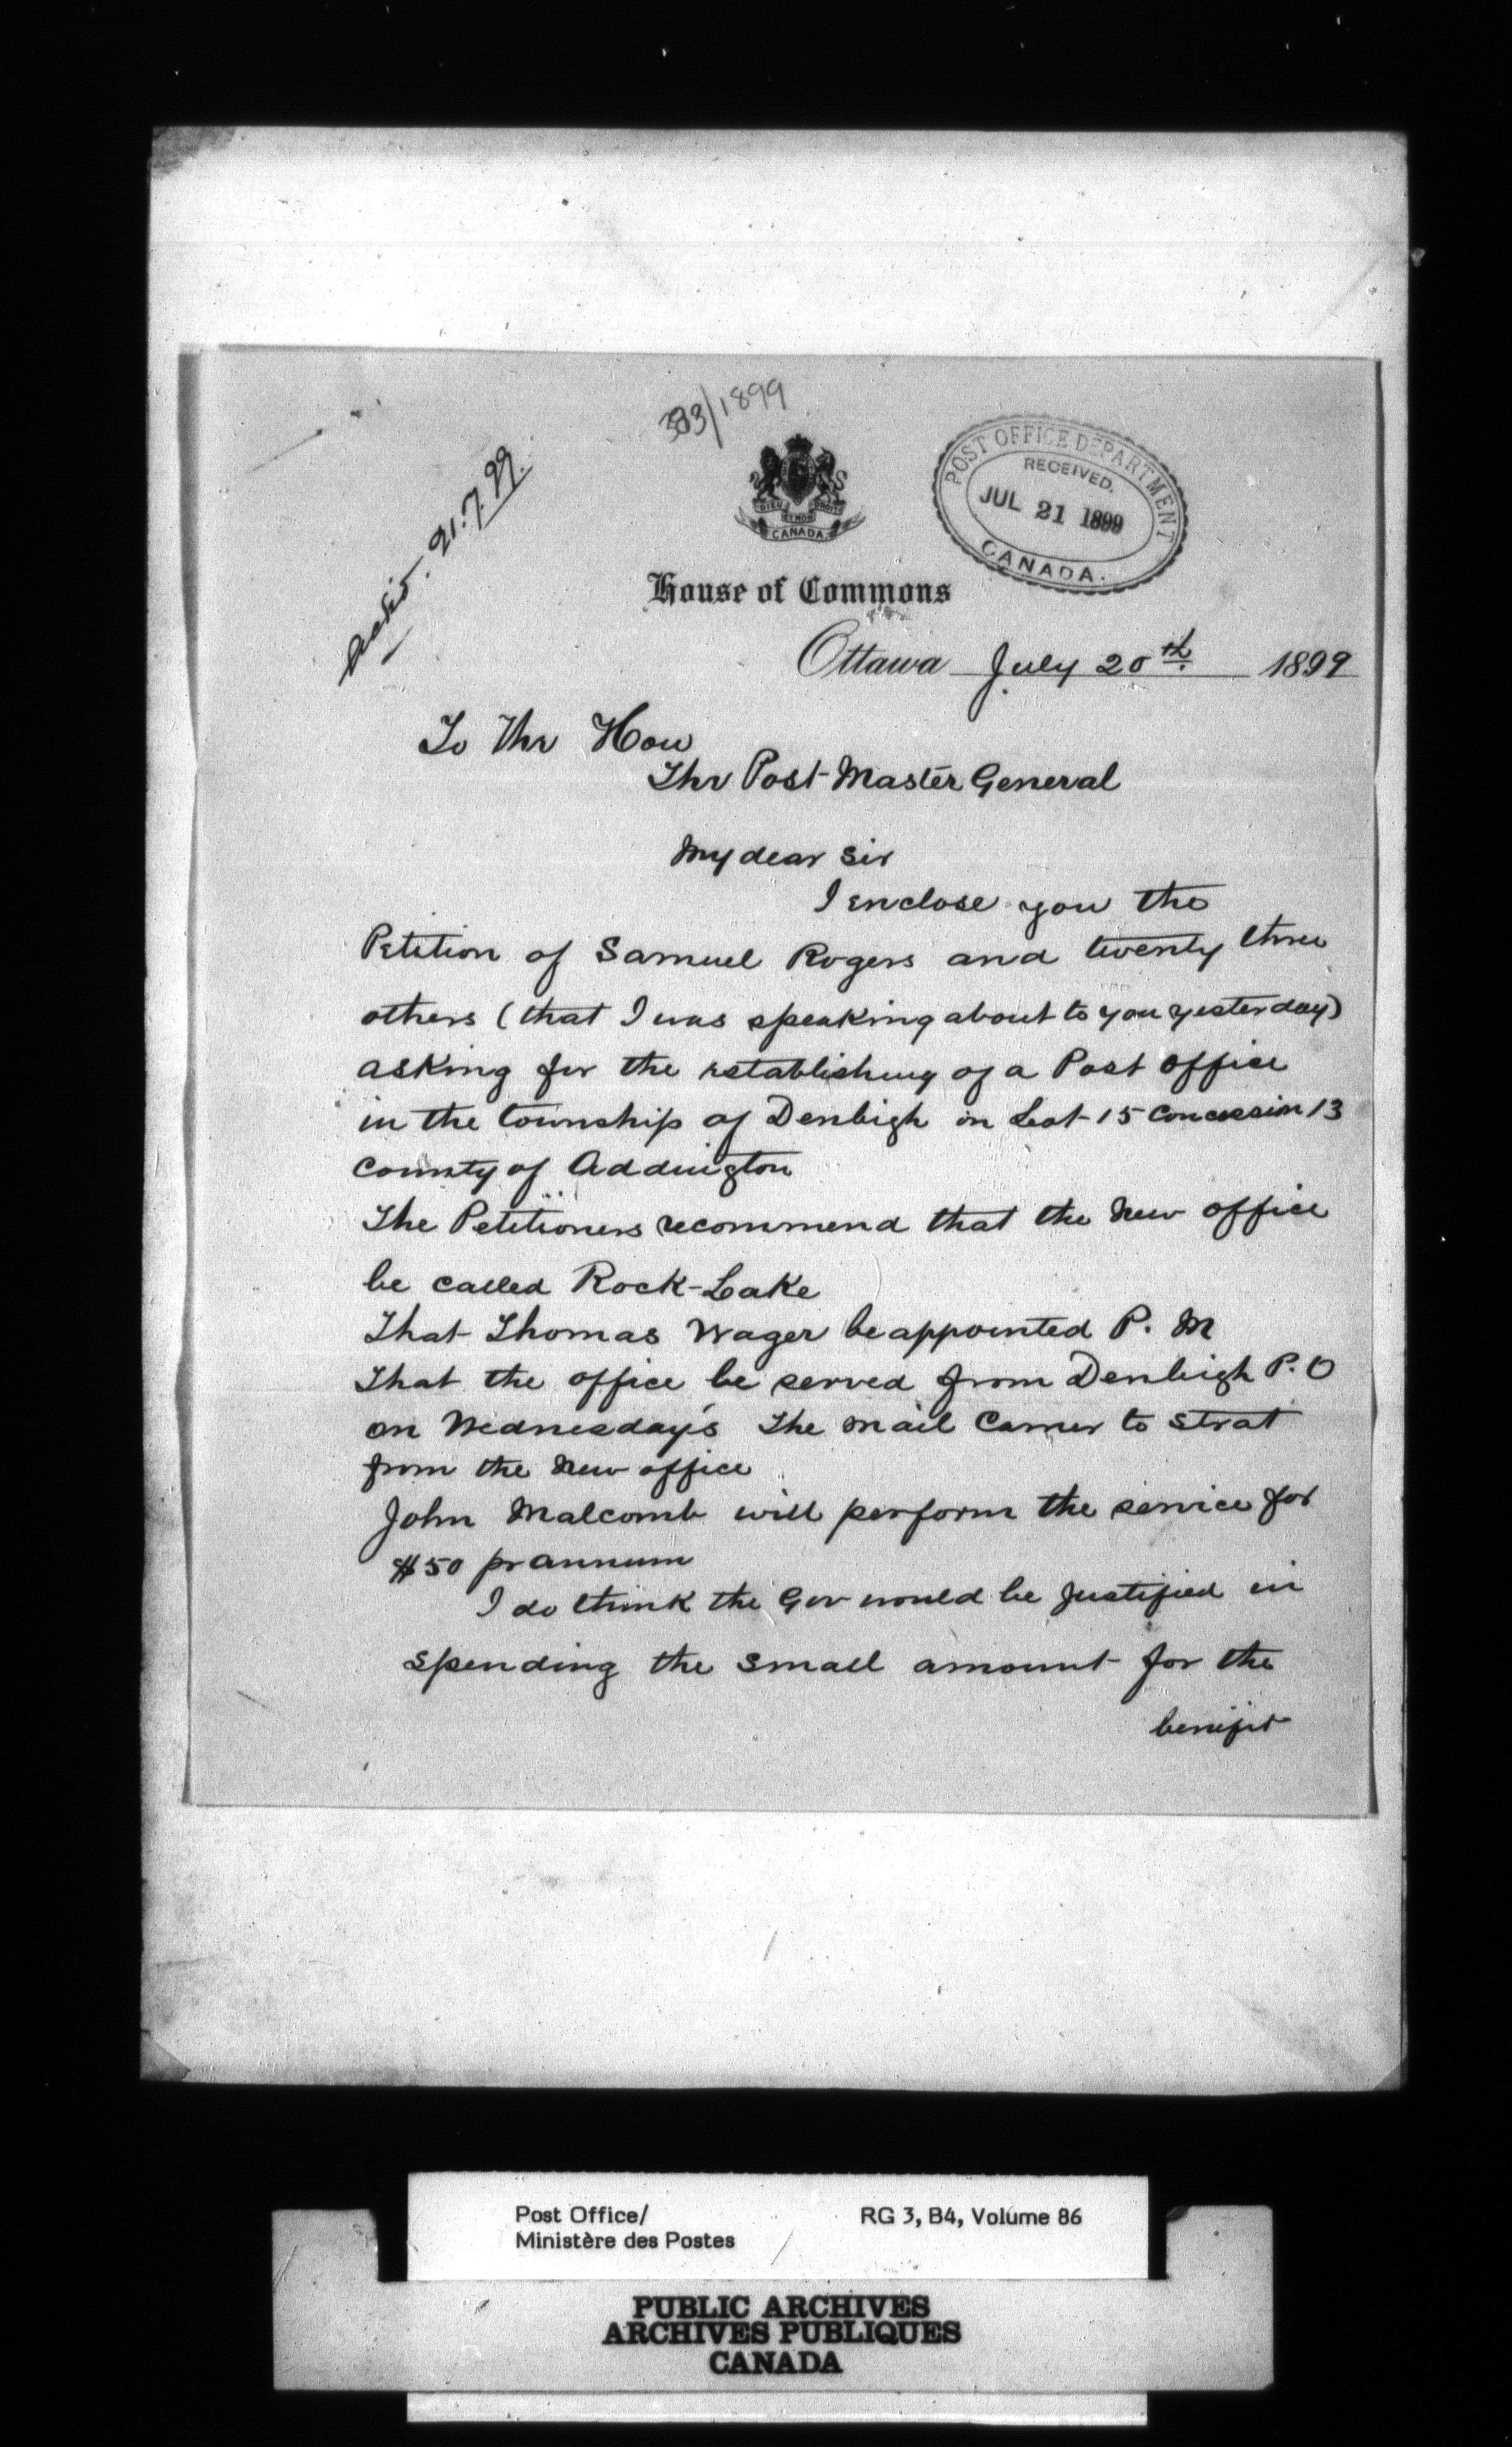 383/1899
21.7.99.
DIEU ET MON DROIT
CANADA
POST OFFICE DEPARTMENT
RECEIVED.
JUL 21 1899
CANADA.
House of Commons
Ottawa July 20th. 1899
To The Hon
The Post-Master General
My dear Sir
I enclose you the
Petition of Samuel Rogers and twenty three
others (that I was speaking about to you yesterday)
asking for the establishing of a Post office
in the township of Denbigh on Lot-15 Concession 13
County of Addington
The Petitioners recommend that the New office
be called Rock-Lake
That Thomas Wager be appointed P. M
That the office be served from Denbigh P.O
on Wednesday's The mail Carrier to strat
from the New office
John Malcomb will perform the service for
$50 pr annum
I do think the Gov would be Justified in
spending the small amount for the
benifit
Post Office/ RG 3, B4, Volume 86
Ministère des Postes
PUBLIC ARCHIVES
ARCHIVES PUBLIQUES
CANADA